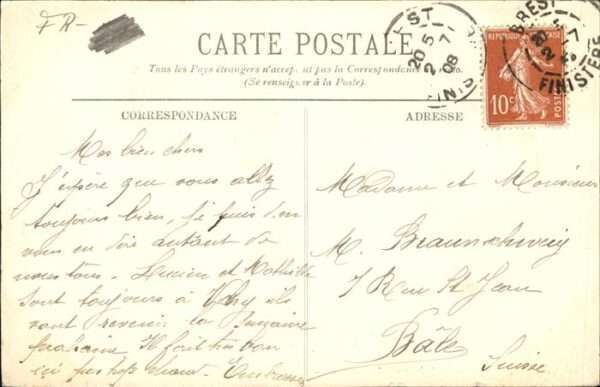 FR-
CARTE POSTALE
Tous les Pays étrangers n'accep ut pas la Correspondance
(Se renseigner à la Poste).
BREST
20 5
2 -7
08
FINIS
BREST
2 -7
FINISTERE
REPUBLIQUE
POSTES
10c
CORRESPONDANCE
ADRESSE
Mes bien chers
J'espère que vous allez
toujours bien,
vous en dire autant de
nous tous. Lucien et Mathilde
sont toujours à Vichy ils
vont revenir la semaine
prochaine Il fait très bon
ici pas trop chaud.
Madame et Monsieur
M. Braunschweig
7 Rue St Jean
Bâle
Suisse